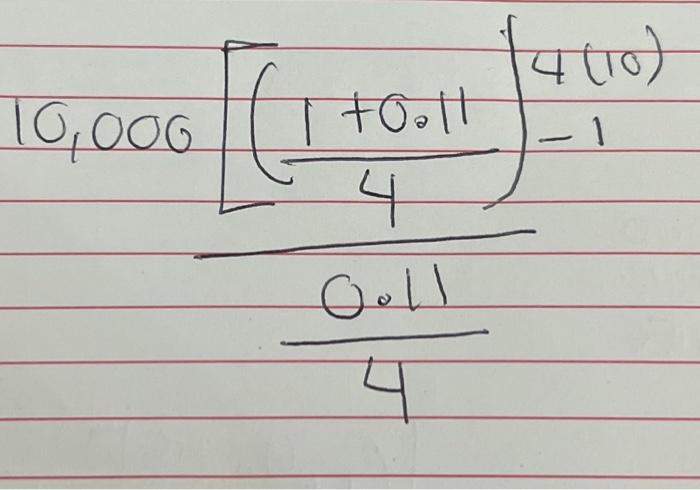 10,000 [(1 + 0.11 / 4)^4(10) - 1
0.11
4